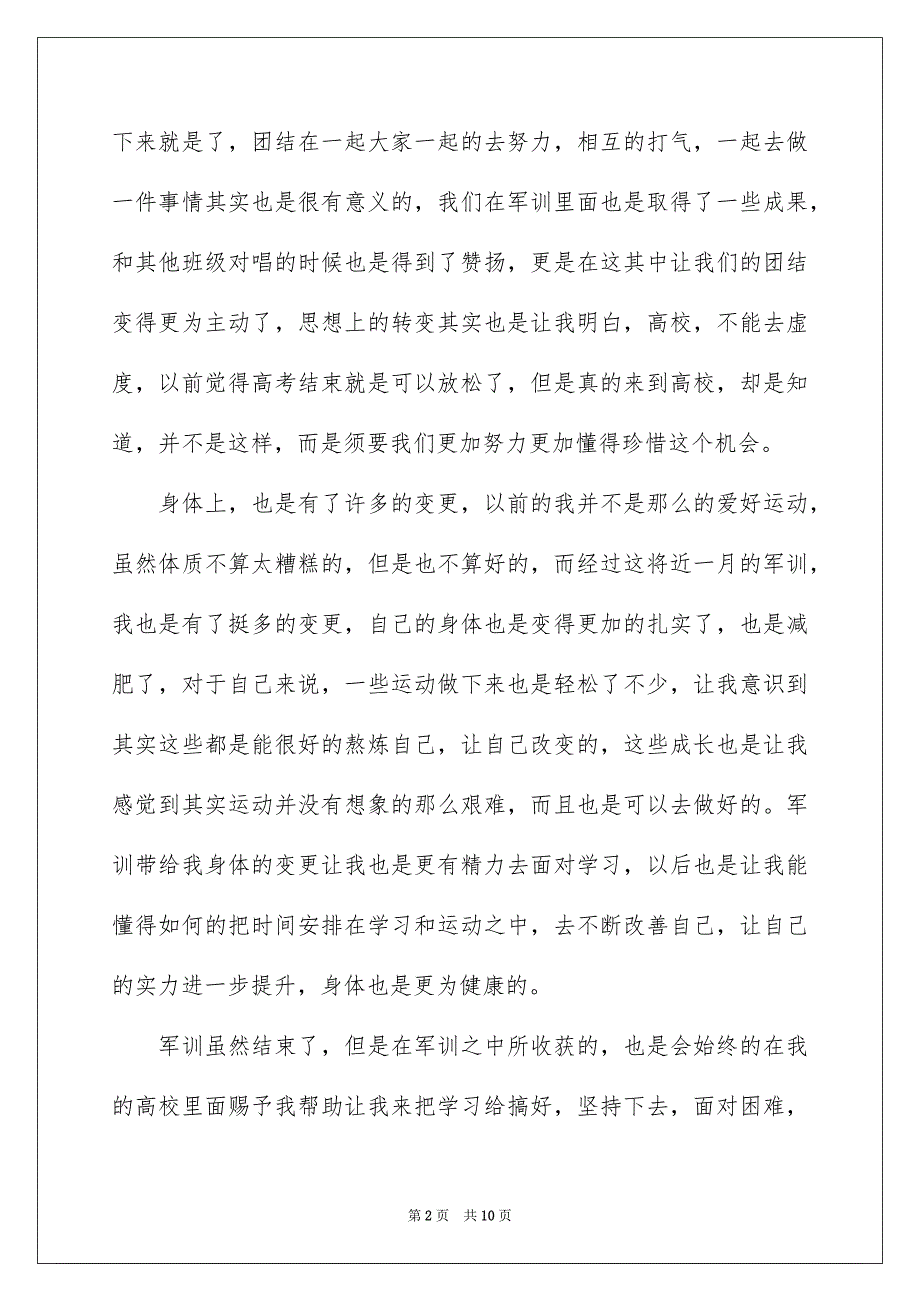 下来就是了，团结在一起大家一起的去努力，相互的打气，一起去做
一件事情其实也是很有意义的，我们在军训里面也是取得了一些成果，
和其他班级对唱的时候也是得到了赞扬，更是在这其中让我们的团结
变得更为主动了，思想上的转变其实也是让我明白，高校，不能去虚
度，以前觉得高考结束就是可以放松了，但是真的来到高校，却是知
道，并不是这样，而是须要我们更加努力更加懂得珍惜这个机会。
身体上，也是有了许多的变更，以前的我并不是那么的爱好运动，
虽然体质不算太糟糕的，但是也不算好的，而经过这将近一月的军训，
我也是有了挺多的变更，自己的身体也是变得更加的扎实了，也是减
肥了，对于自己来说，一些运动做下来也是轻松了不少，让我意识到
其实这些都是能很好的熬炼自己，让自己改变的，这些成长也是让我
感觉到其实运动并没有想象的那么艰难，而且也是可以去做好的。军
训带给我身体的变更让我也是更有精力去面对学习，以后也是让我能
懂得如何的把时间安排在学习和运动之中，去不断改善自己，让自己
的实力进一步提升，身体也是更为健康的。
军训虽然结束了，但是在军训之中所收获的，也是会始终的在我
的高校里面赐予我帮助让我来把学习给搞好，坚持下去，面对困难，
第 2 页 共 10 页